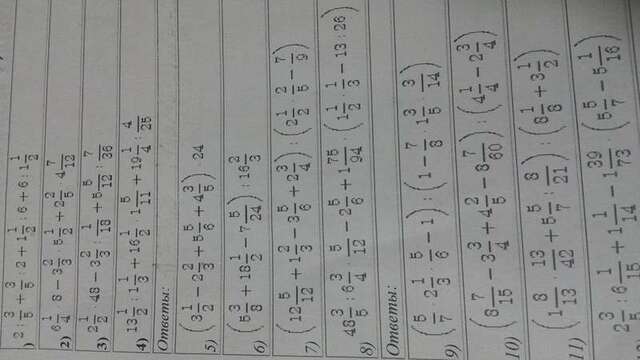 ) 2 : 3/5 + 3/5 : 2 + 1 1/2 : 6 + 6 : 1 1/2
2) 6 1/4 · 8 − 3 2/3 · 5 1/2 + 2 2/5 · 4 7/12
3) 2 1/2 · 48 − 3 2/3 : 1/18 + 5 5/12 : 7/36
4) 13 1/2 : 1 1/3 + 16 1/2 · 1 5/11 + 19 1/4 : 4/25
Ответы:
5) (3 1/2 − 2 2/3 + 5 5/6 + 4 3/5) · 24
6) (5 3/8 + 18 1/2 − 7 5/24) : 16 2/3
7) (12 5/12 + 1 2/3 − 3 5/6 + 2 3/4) : (2 1/2 · 2/5 − 7/9)
8) 48 3/5 : 6 3/4 · 5/12 − 2 5/6 + 1 75/94 · (1 1/2 · 1/3 − 13 : 26)
Ответы:
9) (5/7 · 2 1/3 · 5/6 − 1) : (1 − 7/8 · 1 3/5 · 3/14)
10) (8 7/15 − 3 3/4 + 4 2/5 − 8 7/60) : (4 1/4 − 2 3/4)
11) (1 8/13 · 13/42 + 5 5/7 : 8/21) : (8 1/8 + 3 1/2)
2 3/5 : 6 1/15 + 1 1/14 − 1 39/73 · (5 5/7 − 5 1/16)